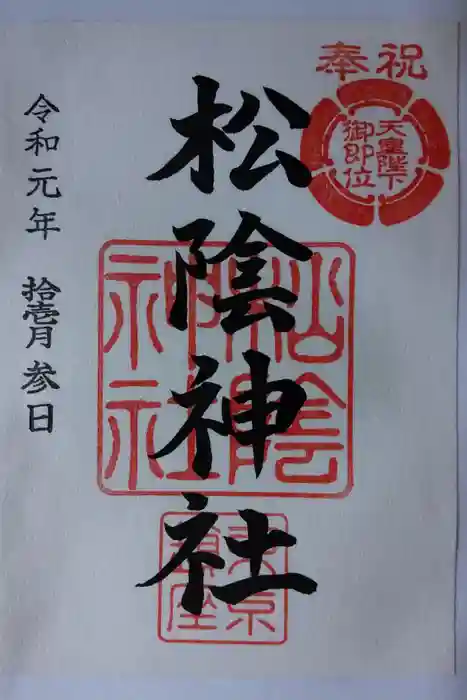 奉祝
天皇陛下
御即位
松陰神社
松陰神社
東京
鎮座
令和元年 拾壱月参日